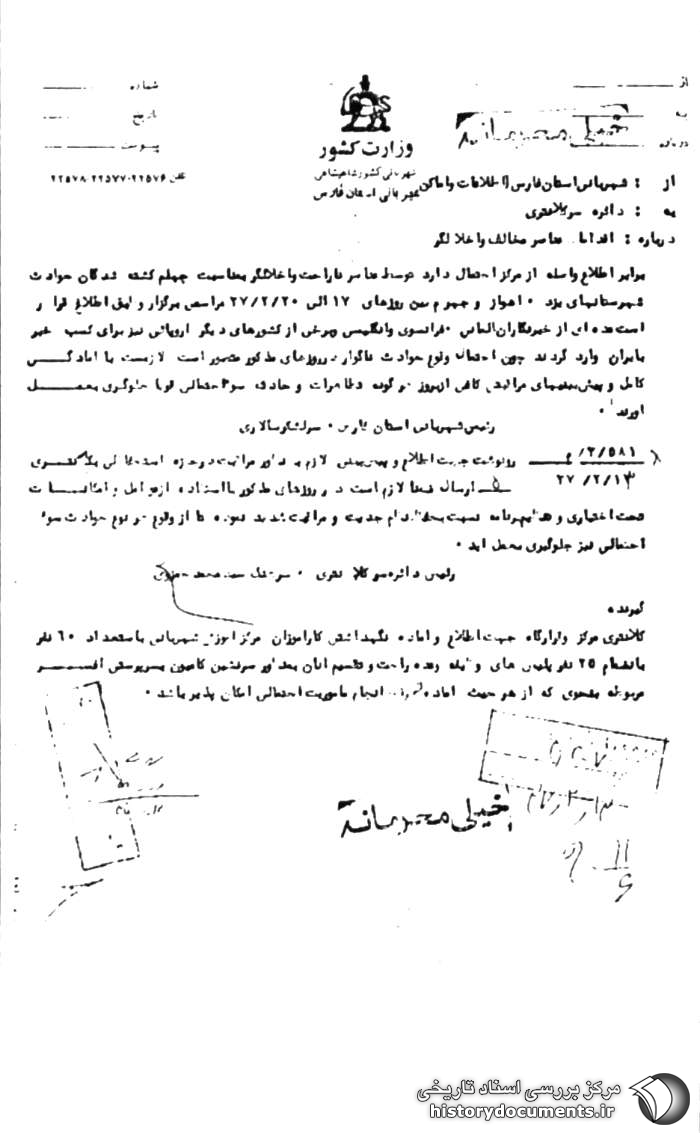 از
شماره
به
تاریخ
درباره
پیوست
خیلی محرمانه
وزارت کشور
شهربانی کشور شاهنشاهی
شهربانی استان فارس
تلفن ۲۲۵۷۶-۲۲۵۷۷-۲۲۵۷۸
از : شهربانی استان فارس (اطلاعات و اماکن
به : دائره سرکلانتری
درباره : اقدامات عناصر مخالف و اخلالگر
برابر اطلاع واصله از مرکز احتمال دارد توسط عناصر ناراحت و اخلالگر بمناسبت چهلم کشته شدگان حوادث
شهرستانهای یزد ، اهواز و جهرم بین روزهای ۱۷ الی ۲۷/۲/۲۰ مراسمی برگزار و طبق اطلاع قرار
است عده ای از خبرنگاران المانی ، فرانسوی وانگلیسی وبرخی از کشورهای دیگر اروپائی نیز برای کسب خبر
بایران وارد گردند چون احتمال وقوع حوادث ناگوار در روزهای مذکور متصور است لازمست با امادگی
کامل و پیش بینیهای مراقبتی کافی ازبروز هرگونه تظاهرات و حادثه سوء احتمالی قویا جلوگیری بعمل
اورند ،
رئیس شهربانی استان فارس ، سرلشگر سالاری
۲/۵۸۱
۲۷/۲/۱۳
رونوشت جهت اطلاع و پیش بینی لازم بمنظور مراقبت در حوزه استحفاظی بکلانتری
ارسال ضمنا لازم است در روزهای مذکور با استفاده از عوامل و امکانات
تحت اختیاری و تنظیم برنامه نسبت بحفظ نظم جدیت و مراقبت شدید نموده تا از وقوع هر نوع حوادث سوء
احتمالی نیز جلوگیری بعمل اید ،
رئیس دائره سرکلانتری ، سرهنگ سید محمد
گیرنده
کلانتری مرکز وقرارگاه جهت اطلاع و اماده نگهداشتن کاراموزان مرکز اموزش شهربانی باستعداد ۶۰ نفر
بانضمام ۲۵ نفر پلیس های وظیفه رده راحت و تقسیم انان بمنظور سرنشین کامیون بسرپرستی افسر
مربوطه بنحوی که از هر حیث اماده انجام ماموریت احتمالی امکان پذیر باشد ،
خیلی محرمانه
مرکز بررسی اسناد تاریخی
historydocuments.ir